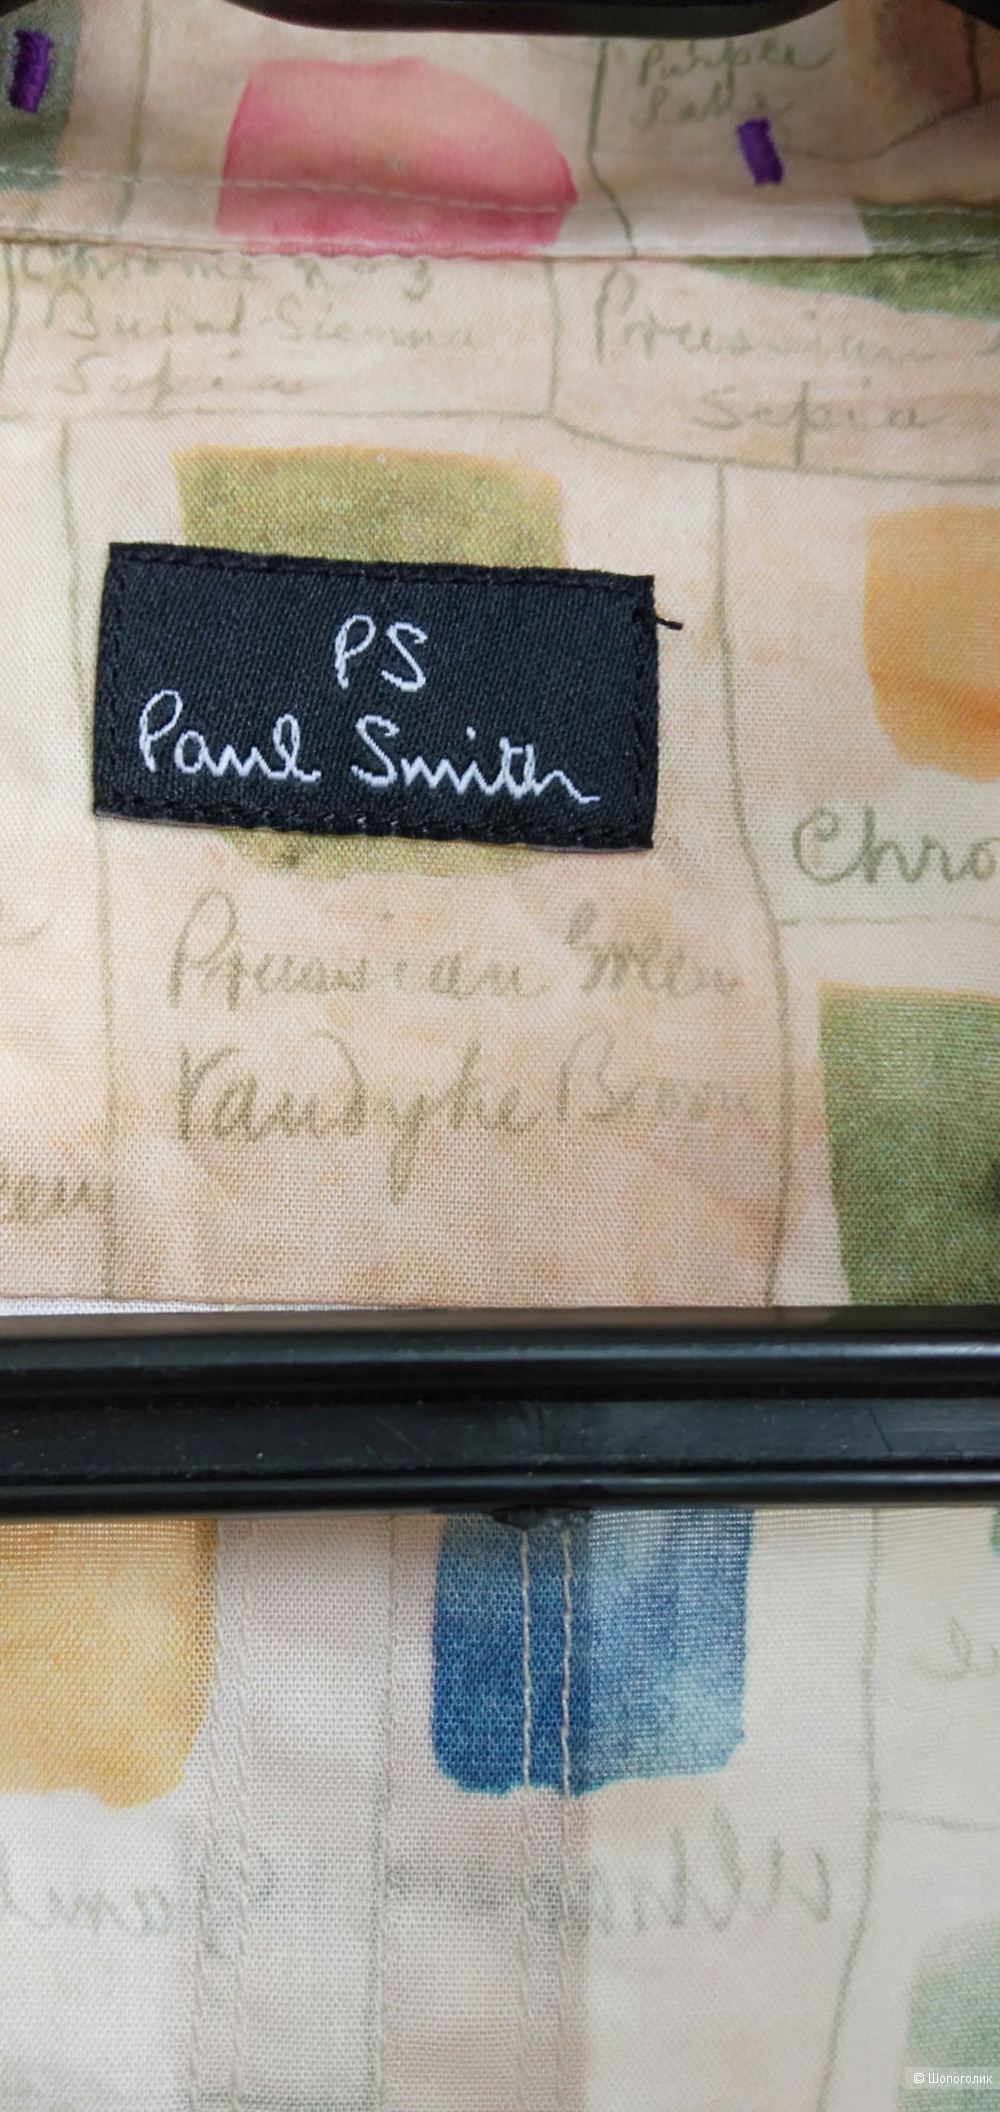 Purple
Lake
Chrome n° 3
Burnt-Sienna
Sepia
Prussian
Sepia
PS
Paul Smith
Chro
Prussian Green
Vandyke Brown
© Шопоголик